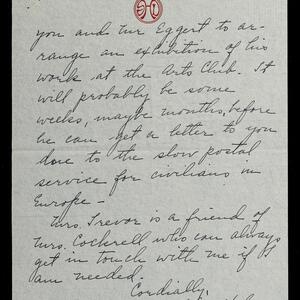 you and Mr Eggert to ar-
range an exhibition of his
work at the Arts Club. It
will probably be some
weeks, maybe months, before
he can get a letter to you
due to the slow postal
service for civilians in
Europe —
Mrs. Trevor is a friend of
Mrs. Cockrell who can always
get in touch with me if I
am needed.
Cordially,